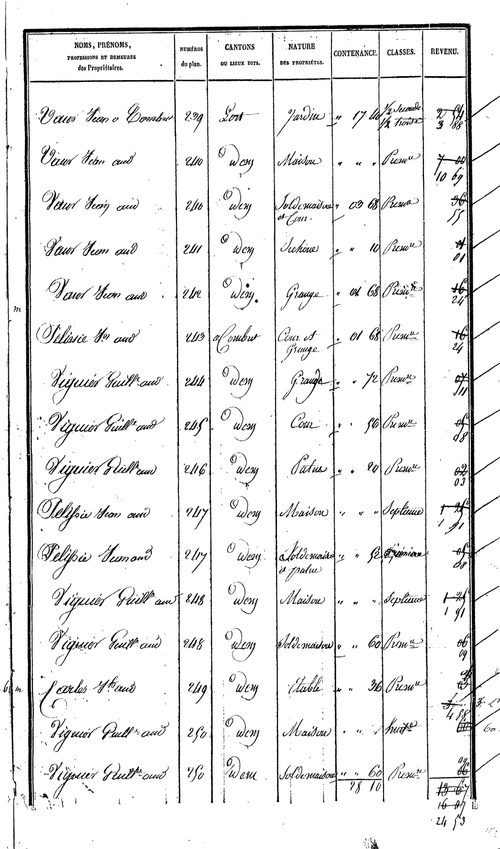 NOMS, PRÉNOMS, NUMÉROS CANTONS NATURE CONTENANCE. CLASSES. REVENU.
PROFESSIONS ET DEMEURES
des Propriétaires. du plan. OU LIEUX DITS. DES PROPRIÉTÉS.
Vaur Jean a Combur 239 Lort Jardin " 17 40 1/2 seconde 1/2 troisie 2 54
3 88
Vaur Jean aud 240 idem Maison " " " Prem.re 7 00
10 69
Vaur Jean aud 240 idem Sol de maison et Cour " 03 68 Prem.re 36
55
Vaur Jean aud 241 idem " " 10 Prem.re 01
Vaur Jean aud 242 idem. Grange " 01 68 Prem.re 16
24
Pelissie aud 243 a Combur Cour et Grange " 01 68 Prem.re 16
24
Viguier Guill.e aud 244 idem Grange " " 72 Prem.re 07
11
Viguier Guill.e aud 245 idem Cour " " 56 Prem.re 05
08
Viguier Guill.e aud 246 idem Patus " " 20 Prem.re 02
03
Pelissie Jean aud 247 idem Maison " " " Septieme 1 25
1 91
Pelissie Jean aud 247 idem Sol de maison et patus " " 52 Premiere 05
08
Viguier Guill.e aud 248 idem Maison " " " Septieme 1 25
1 91
Viguier Guill.e aud 248 idem Sol de maison " " 60 Prem.re 06
09
Carles aud 249 idem Etable " " 36 Prem.re
Viguier Guill.e aud 250 idem Maison " " " 3
4 58
Viguier Guill.e aud 250 idem Sol de maison " " 60 Prem.re 09
06
28 10 13 67
16 07
24 53